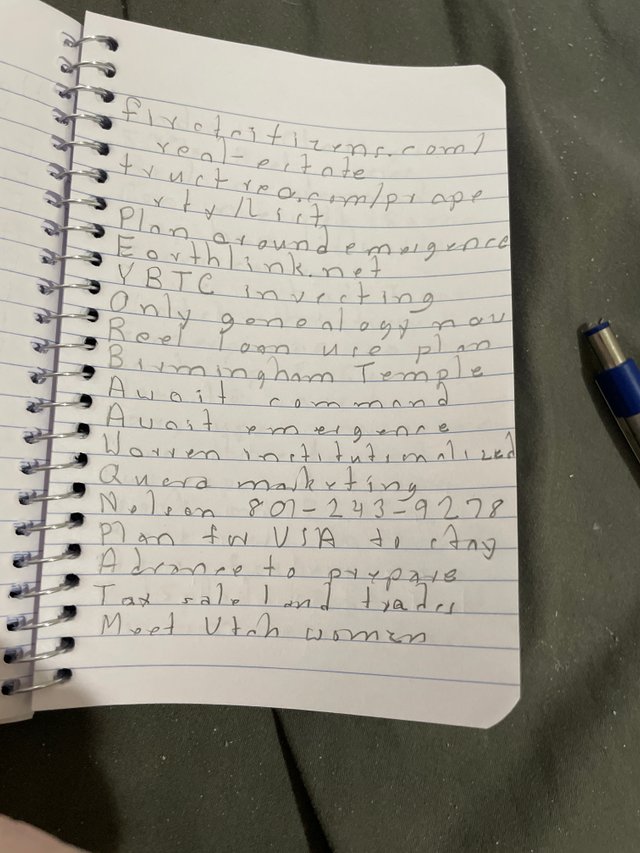 firstcitizens.com/
real-estate
trustreo.com/prope
rty/List
Plan around emergence
Earthlink.net
VBTC investing
Only genealogy now
Reel loan use plan
Birmingham Temple
Await command
Await emergence
Warren institutionalized
Quora marketing
Nelson 801-243-9278
Plan for USA to stay
Advance to prepare
Tax sale land trades
Meet Utah women